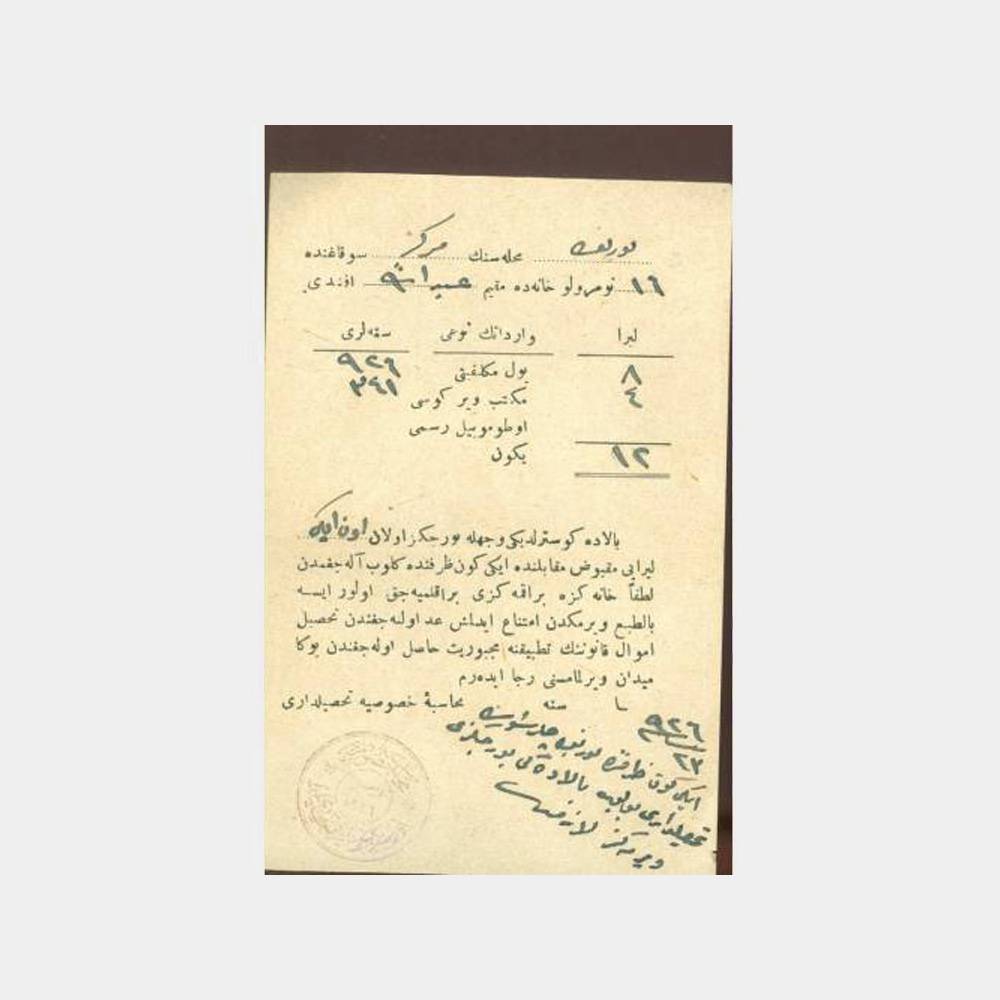 محله سنك مركز سوقاغنده
١٦ نومرولو خانه ده مقيم افندى
ليرا وارداتك نوعى سنه لرى
٨ يول مكلفيتى ٩٢٦
٤ مكتب ويركوسى ٣٤١
اوطوموبيل رسمى
١٢ يكون
بالاده كوسترلديكى وجهله بورجكز اولان اون ايكى
ليرايى مقبوض مقابلنده ايكى كون ظرفنده كلوب آله جغمدن
لطفاً خانه كزه براقمه كزى براقلميه جق اولور ايسه
بالطبع ويرمكدن امتناع ايدلمش عد اوله جغندن تحصيل
اموال قانوننك تطبيقنه مجبوريت حاصل اوله جغندن بوكا
ميدان ويرلمامسنى رجا ايده رم
سنه محاسبۀ خصوصيه تحصيلدارى
٩٢٦
ايكى كون ظرفنده
تحصيلدارى بالاده كى بورجكزى
ويرمه كز لازمدر